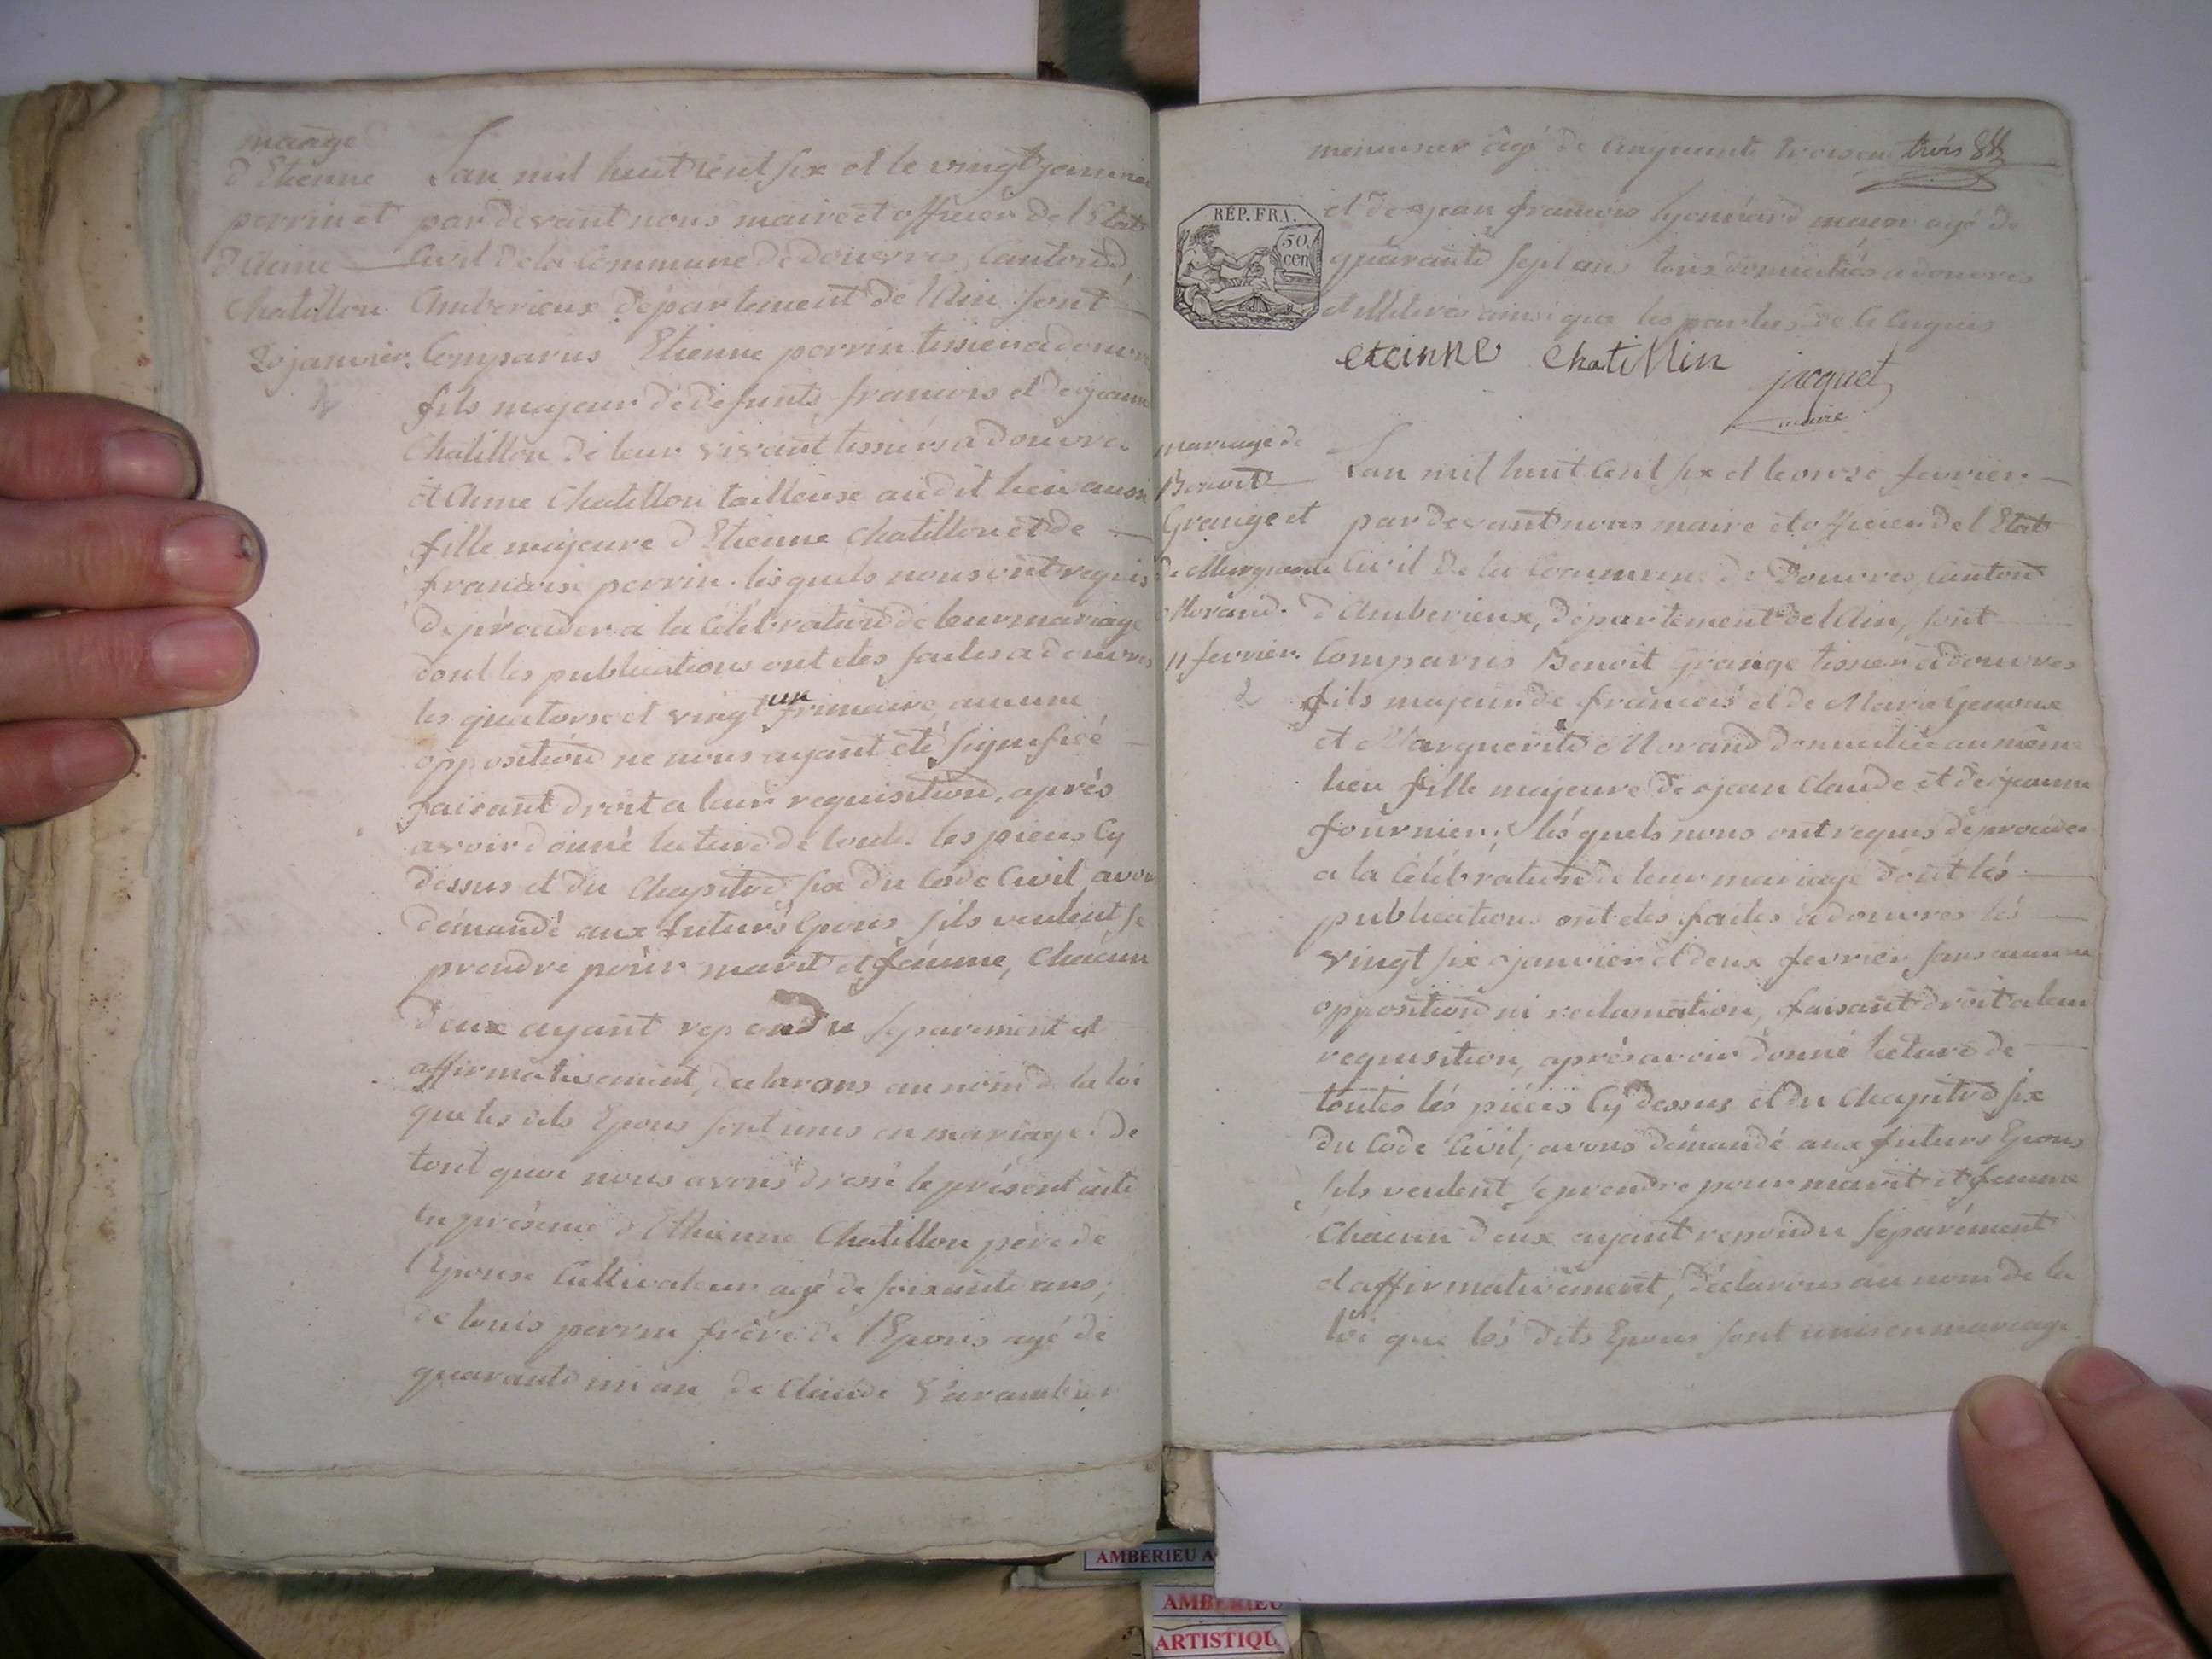 mariage
d'Etienne
perrin et
d'Anne
Chatillon
20 janvier.
Lan mil huit cent six et le vingt janvier
par devant nous maire et officier de l'Etat
Civil de la Commune de douvres, Canton d
Amberieux département de l'Ain sont
Comparus Etienne perrin tissier a douvres
fils majeur de defunts francois et de jeanne
Chatillon de leur vivant tissiers a douvres
et Anne Chatillon tailleuse audit lieu aussi
fille majeure d'Etienne Chatillon et de
francoise perrin. lesquels nous ont requis
de procéder a la Célébration de leur mariage
dont les publications ont etes faites a douvres
les quatorse et vingt un frimaire, aucune
opposition ne nous ayant été signifiée
faisant droit a leur requisition, après
avoir donné lecture de toutes les pieces Cy
dessus et du Chapitre six du Code Civil, avons
démandé aux futurs Epoux s'ils veulent se
prendre pour marit et fémme, Chacun
deux ayant repondu séparement et
affirmativement, declarons au nom de la loi
que les dits Epoux sont unis en mariage. de
tout quoi nous avons dressé le présent acte
en présence d'Ethienne Chatillon père de
l'Epouse Cultivateur agé de soixante ans,
de louis perrin frère de l'Epoux agé de
quarante un an de Claude Varambier
menuisier âgé de Cinquante trois ans trois
RÉP. FRA.
50.
cen
et de jean francois lyonnard macon agé de
quarante sept ans tous domiciliés a douvres
et illiterés ainsi que les parties de Ce enquis
eteinne chatillin
jacquet
maire
mariage de
Benoit
Grange et
de Marguerite
Morand.
11 fevrier.
2
Lan mil huit Cent six et le onze fevrier
par devant nous maire et officier de l'Etat
Civil de la Commune de Douvres, Canton
d'Amberieux, département de l'Ain, sont
Comparus Benoit Grange tissier a douvres
fils majeur de francois et de Marie Genoux
et Marguerite Morand domiciliée au même
lieu fille majeure de jean Claude et de jeanne
fournier; lésquels nous ont requis de procéder
a la Célébration de leur mariage dont lés
publications ont etés faites a douvres lés
vingt six janvier et deux fevrier sans aucune
opposition ni reclamation, faisant droit a leur
requisition, après avoir donné lecture de
toutes lés piéces Cy dessus et du Chapitre six
du Code Civil, avons démandé aux futurs Epoux
s'ils veulent se prendre pour marit et femme
Chacun deux ayant repondu séparément
et affirmativement, déclarons au nom de la
loi que lés dits Epoux sont unis en mariage
AMBERIEU A
AMBERIEU
ARTISTIQU